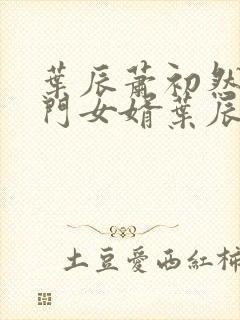 葉辰蕭初然
門女婿葉辰
土豆愛西紅柿